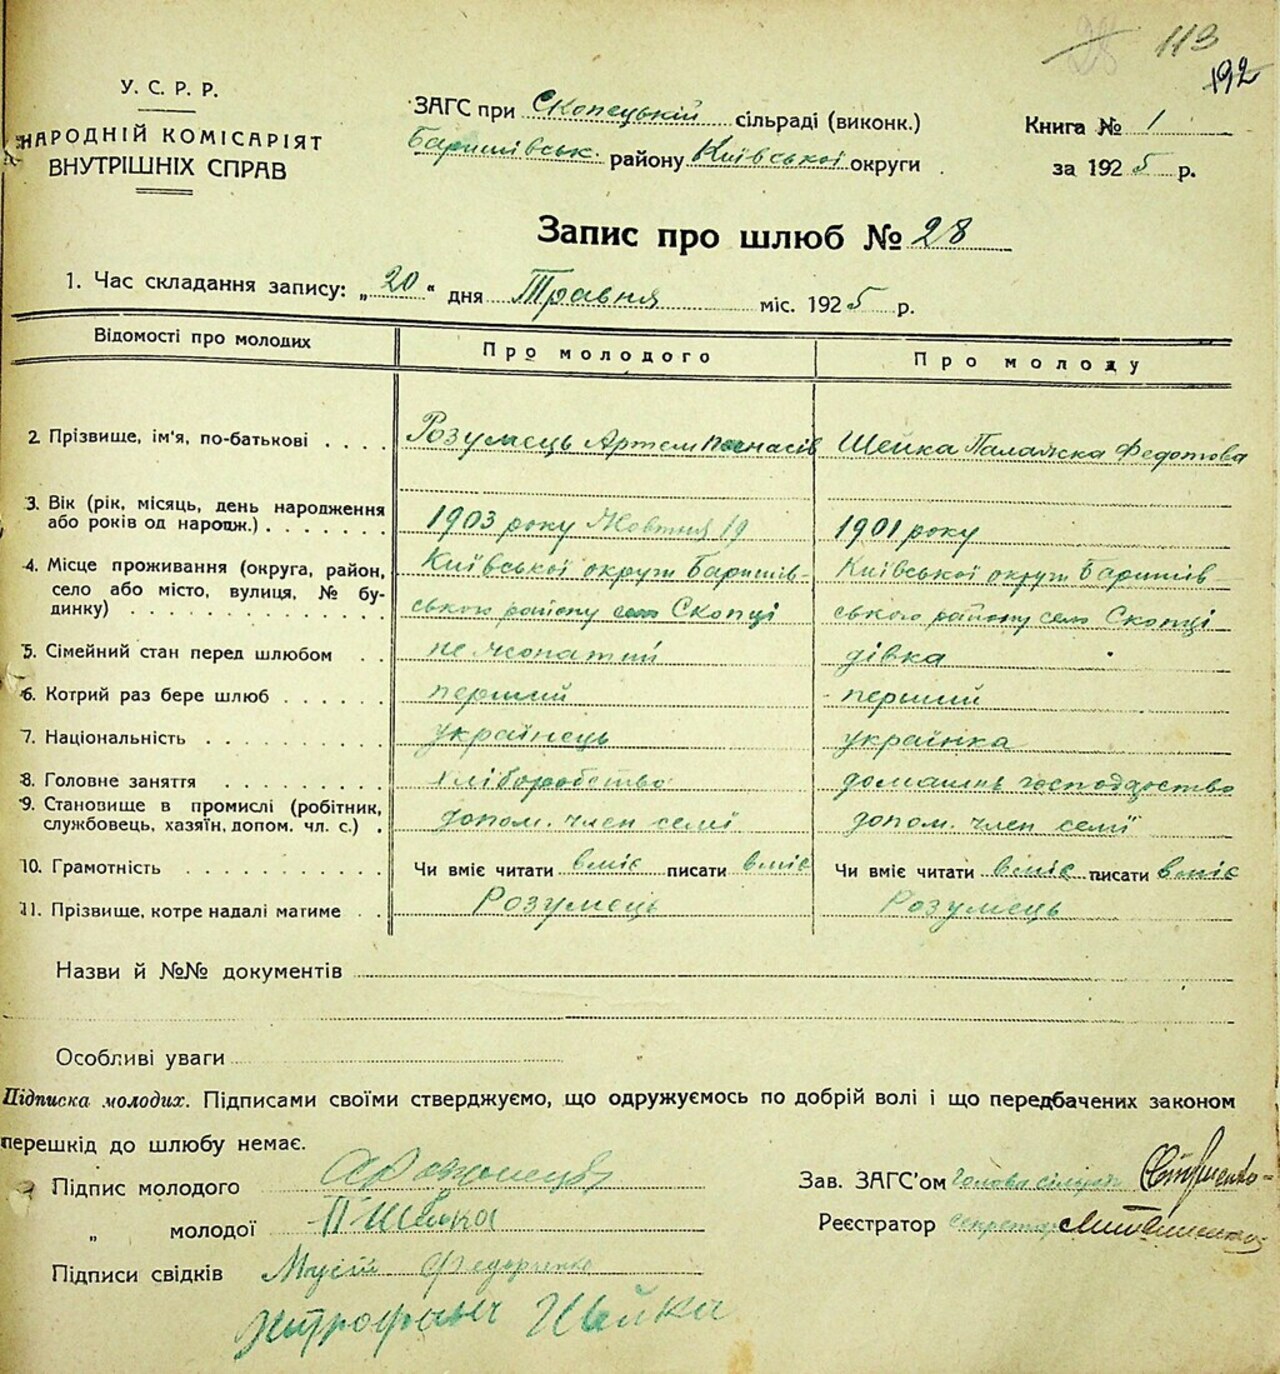 28 113
192
У. С. Р. Р.
НАРОДНІЙ КОМІСАРІЯТ
ВНУТРІШНІХ СПРАВ
ЗАГС при Скопецькій сільраді (виконк.)
Баришівськ. району Київської округи
Книга № 1
за 1925 р.
Запис про шлюб № 28
1. Час складання запису: „20“ дня Травня міс. 1925 р.
Відомості про молодих Про молодого Про молоду
2. Прізвище, ім'я, по-батькові Розумєць Артем Панасів Шейка Палажка Федотова
3. Вік (рік, місяць, день народження
або років од народж.) 1903 року Жовтня 19 1901 року
4. Місце проживання (округа, район, Київської округи Баришів- Київської округи Баришів-
село або місто, вулиця, № бу-
динку) ською району село Скопці ською району село Скопці
5. Сімейний стан перед шлюбом не жонатий дівка
6. Котрий раз бере шлюб перший перший
7. Національність українець українка
8. Головне заняття хліборобство домашнь господарство
9. Становище в промислі (робітник,
службовець, хазяїн, допом. чл. с.) допом. член семї допом. член семї
10. Грамотність Чи вміє читати вміє писати вміє Чи вміє читати вміє писати вміє
11. Прізвище, котре надалі матиме Розумєць Розумєць
Назви й №№ документів
Особливі уваги
Підписка молодих. Підписами своїми стверджуємо, що одружуємось по добрій волі і що передбачених законом
перешкід до шлюбу немає.
Підпис молодого
„ молодої П Шейка
Підписи свідків Мусій Федорченко
Митрофан Шейка
Зав. ЗАГС'ом Голова сільради
Реєстратор секретар